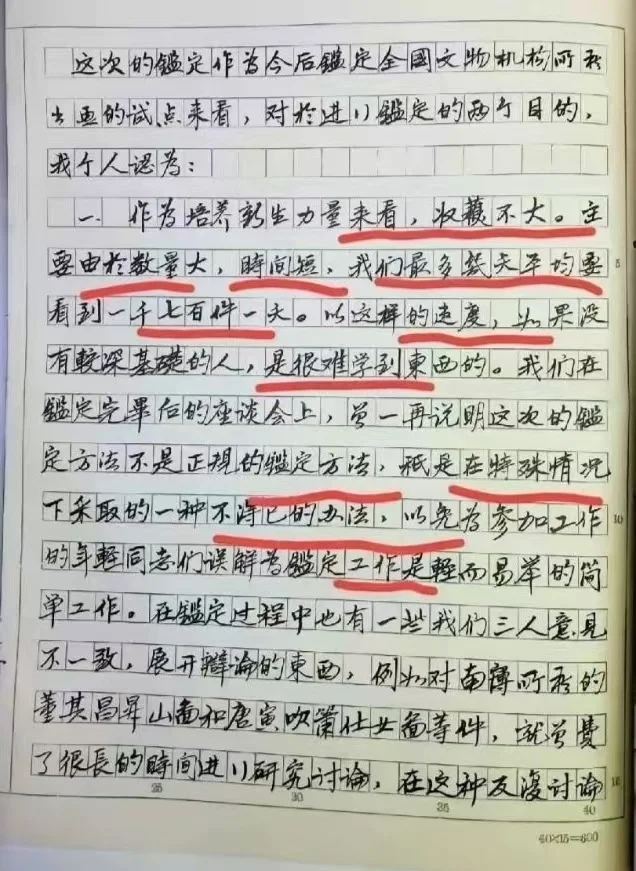 这次的鑑定作为今后鑑定全國文物机构所藏
书画的试点来看，对於进行鑑定的两个目的，
我个人認為：
一、作為培养新生力量来看，收穫不大。主
要由於数量大，時间短，我们最多幾天平均要
看到一千七百件一天。以这样的速度，如果没
有較深基礎的人，是很难学到東西的。我们在
鑑定完畢后的座谈会上，曾一再说明这次的鑑
定方法不是正規的鑑定方法，祇是在特殊情况
下采取的一种不得已的办法，以免為参加工作
的年輕同志们误解為鑑定工作是輕而易举的简
单工作。在鑑定过程中也有一些我们三人意見
不一致，展开辯論的東西，例如对南博所藏的
董其昌昇山畫和唐寅吹簫仕女畫等件，就曾費
了很長的時间进行研究讨論，在这种反復讨論
5
10
15
25
30
35
40
40×15=600